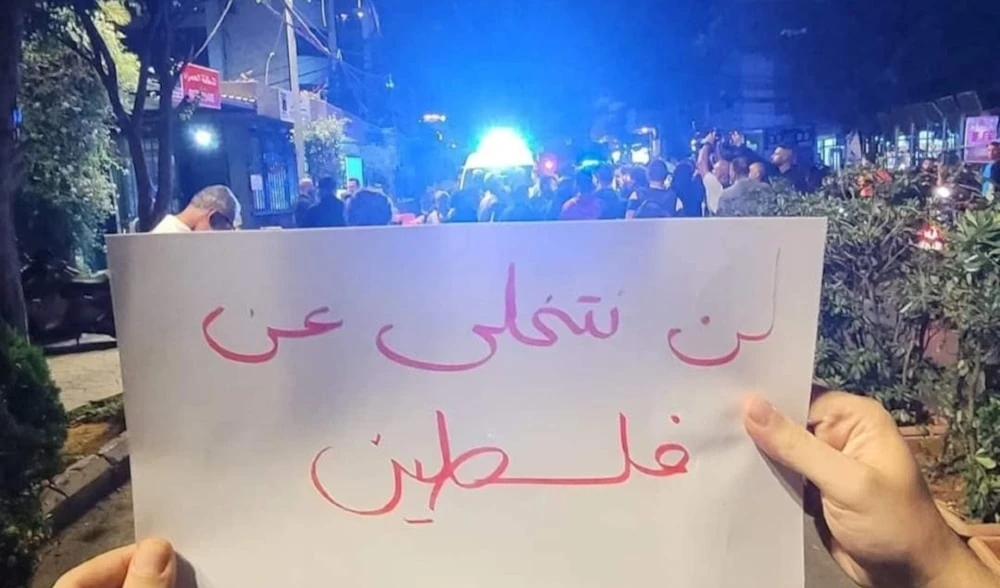 لن نتخلى عن
فلسطين